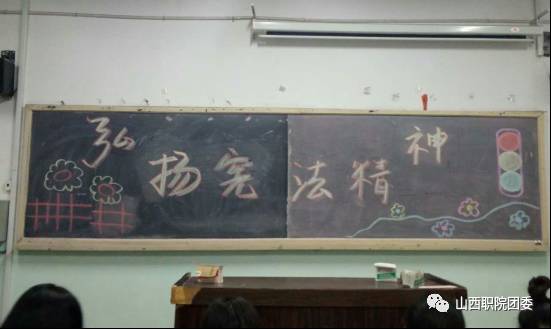 弘扬宪法精神
山西职院团委